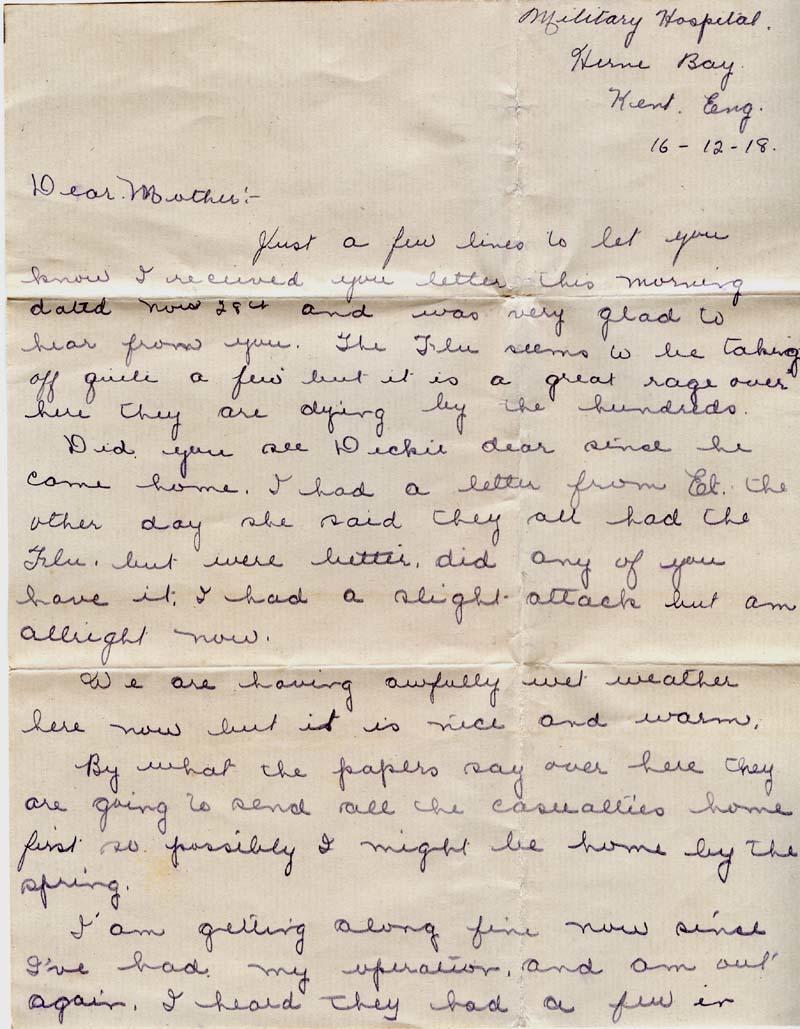 Military Hospital.
Herne Bay.
Kent. Eng.
16-12-18.
Dear Mother:-
Just a few lines to let you
know I received you letter this morning
dated Nov 28th and was very glad to
hear from you. The Flu seems to be taking
off quite a few but it is a great rage over
here they are dying by the hundreds.
Did you see Dickie dear since he
came home. I had a letter from Et. the
other day she said they all had the
Flu. but were better. did any of you
have it. I had a slight attack but am
allright now.
We are having awfully wet weather
here now but it is nice and warm.
By what the papers say over here they
are going to send all the casualties home
first so possibly I might be home by the
spring.
I am getting along fine now since
I've had my operation, and am out
again. I heard they had a few in